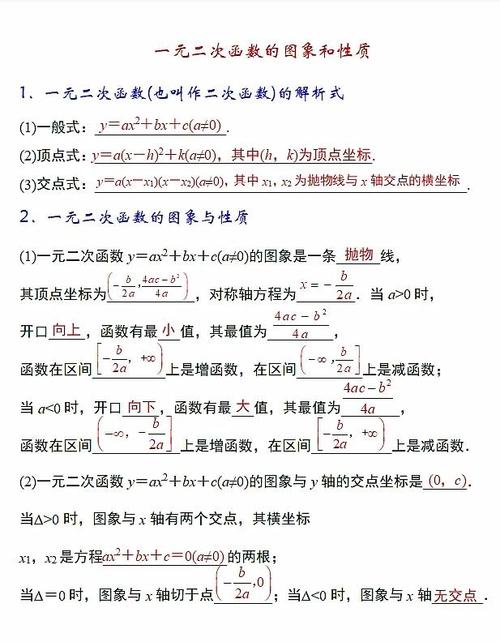 一元二次函数的图象和性质
1、一元二次函数(也叫作二次函数)的解析式
(1)一般式：y=ax²+bx+c(a≠0).
(2)顶点式：y=a(x-h)²+k(a≠0)，其中(h，k)为顶点坐标.
(3)交点式：y=a(x-x₁)(x-x₂)(a≠0)，其中 x₁，x₂ 为抛物线与 x 轴交点的横坐标.
2、一元二次函数的图象与性质
(1)一元二次函数 y=ax²+bx+c(a≠0)的图象是一条 抛物 线，
其顶点坐标为(-b/2a, (4ac-b²)/4a)，对称轴方程为 x=-b/2a．当 a>0 时，
开口 向上，函数有最 小 值，其最值为 (4ac-b²)/4a，
函数在区间[-b/2a，+∞)上是增函数，在区间(-∞，b/2a]上是减函数；
当 a<0 时，开口 向下，函数有最 大 值，其最值为 (4ac-b²)/4a，
函数在区间(-∞，-b/2a]上是增函数，在区间[-b/2a，+∞)上是减函数．
(2)一元二次函数 y=ax²+bx+c(a≠0)的图象与 y 轴的交点坐标是 (0，c)．
当Δ>0 时，图象与 x 轴有两个交点，其横坐标
x₁，x₂ 是方程ax²+bx+c=0(a≠0)的两根；
当Δ=0 时，图象与 x 轴切于点(-b/2a,0)；当Δ<0 时，图象与 x 轴 无交点．